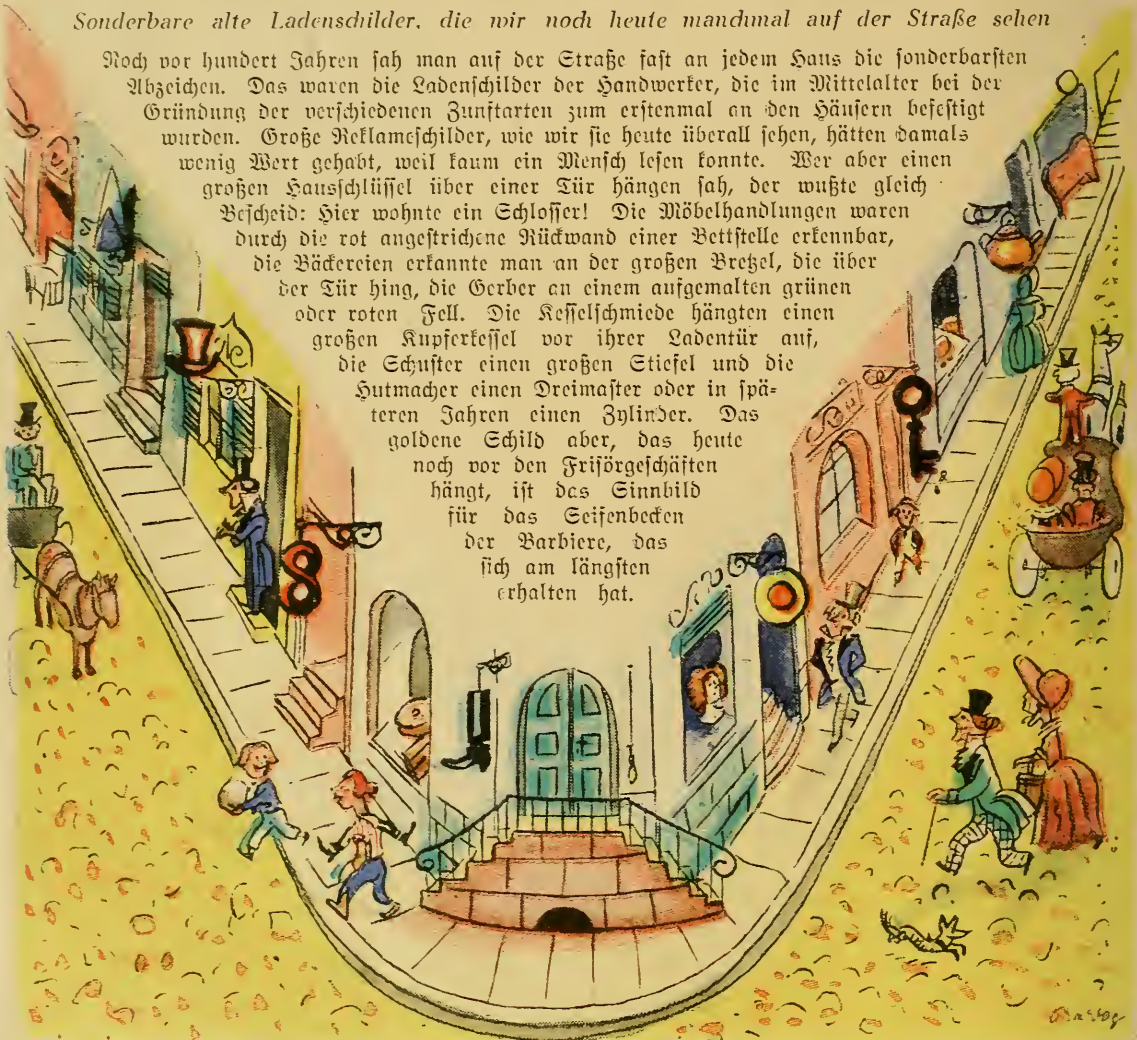 Sonderbare alte Ladenschilder, die wir noch heute manchmal auf der Straße sehen
Noch vor hundert Jahren sah man auf der Straße fast an jedem Haus die sonderbarsten
Abzeichen. Das waren die Ladenschilder der Handwerker, die im Mittelalter bei der
Gründung der verschiedenen Zunftarten zum erstenmal an den Häusern befestigt
wurden. Große Reklameschilder, wie wir sie heute überall sehen, hätten damals
wenig Wert gehabt, weil kaum ein Mensch lesen konnte. Wer aber einen
großen Hausschlüssel über einer Tür hängen sah, der wußte gleich
Bescheid: Hier wohnte ein Schlosser! Die Möbelhandlungen waren
durch die rot angestrichene Rückwand einer Bettstelle erkennbar,
die Bäckereien erkannte man an der großen Bretzel, die über
der Tür hing, die Gerber an einem aufgemalten grünen
oder roten Fell. Die Kesselschmiede hängten einen
großen Kupferkessel vor ihrer Ladentür auf,
die Schuster einen großen Stiefel und die
Hutmacher einen Dreimaster oder in spä-
teren Jahren einen Zylinder. Das
goldene Schild aber, das heute
noch vor den Frisörgeschäften
hängt, ist das Sinnbild
für das Seifenbecken
der Barbiere, das
sich am längsten
erhalten hat.